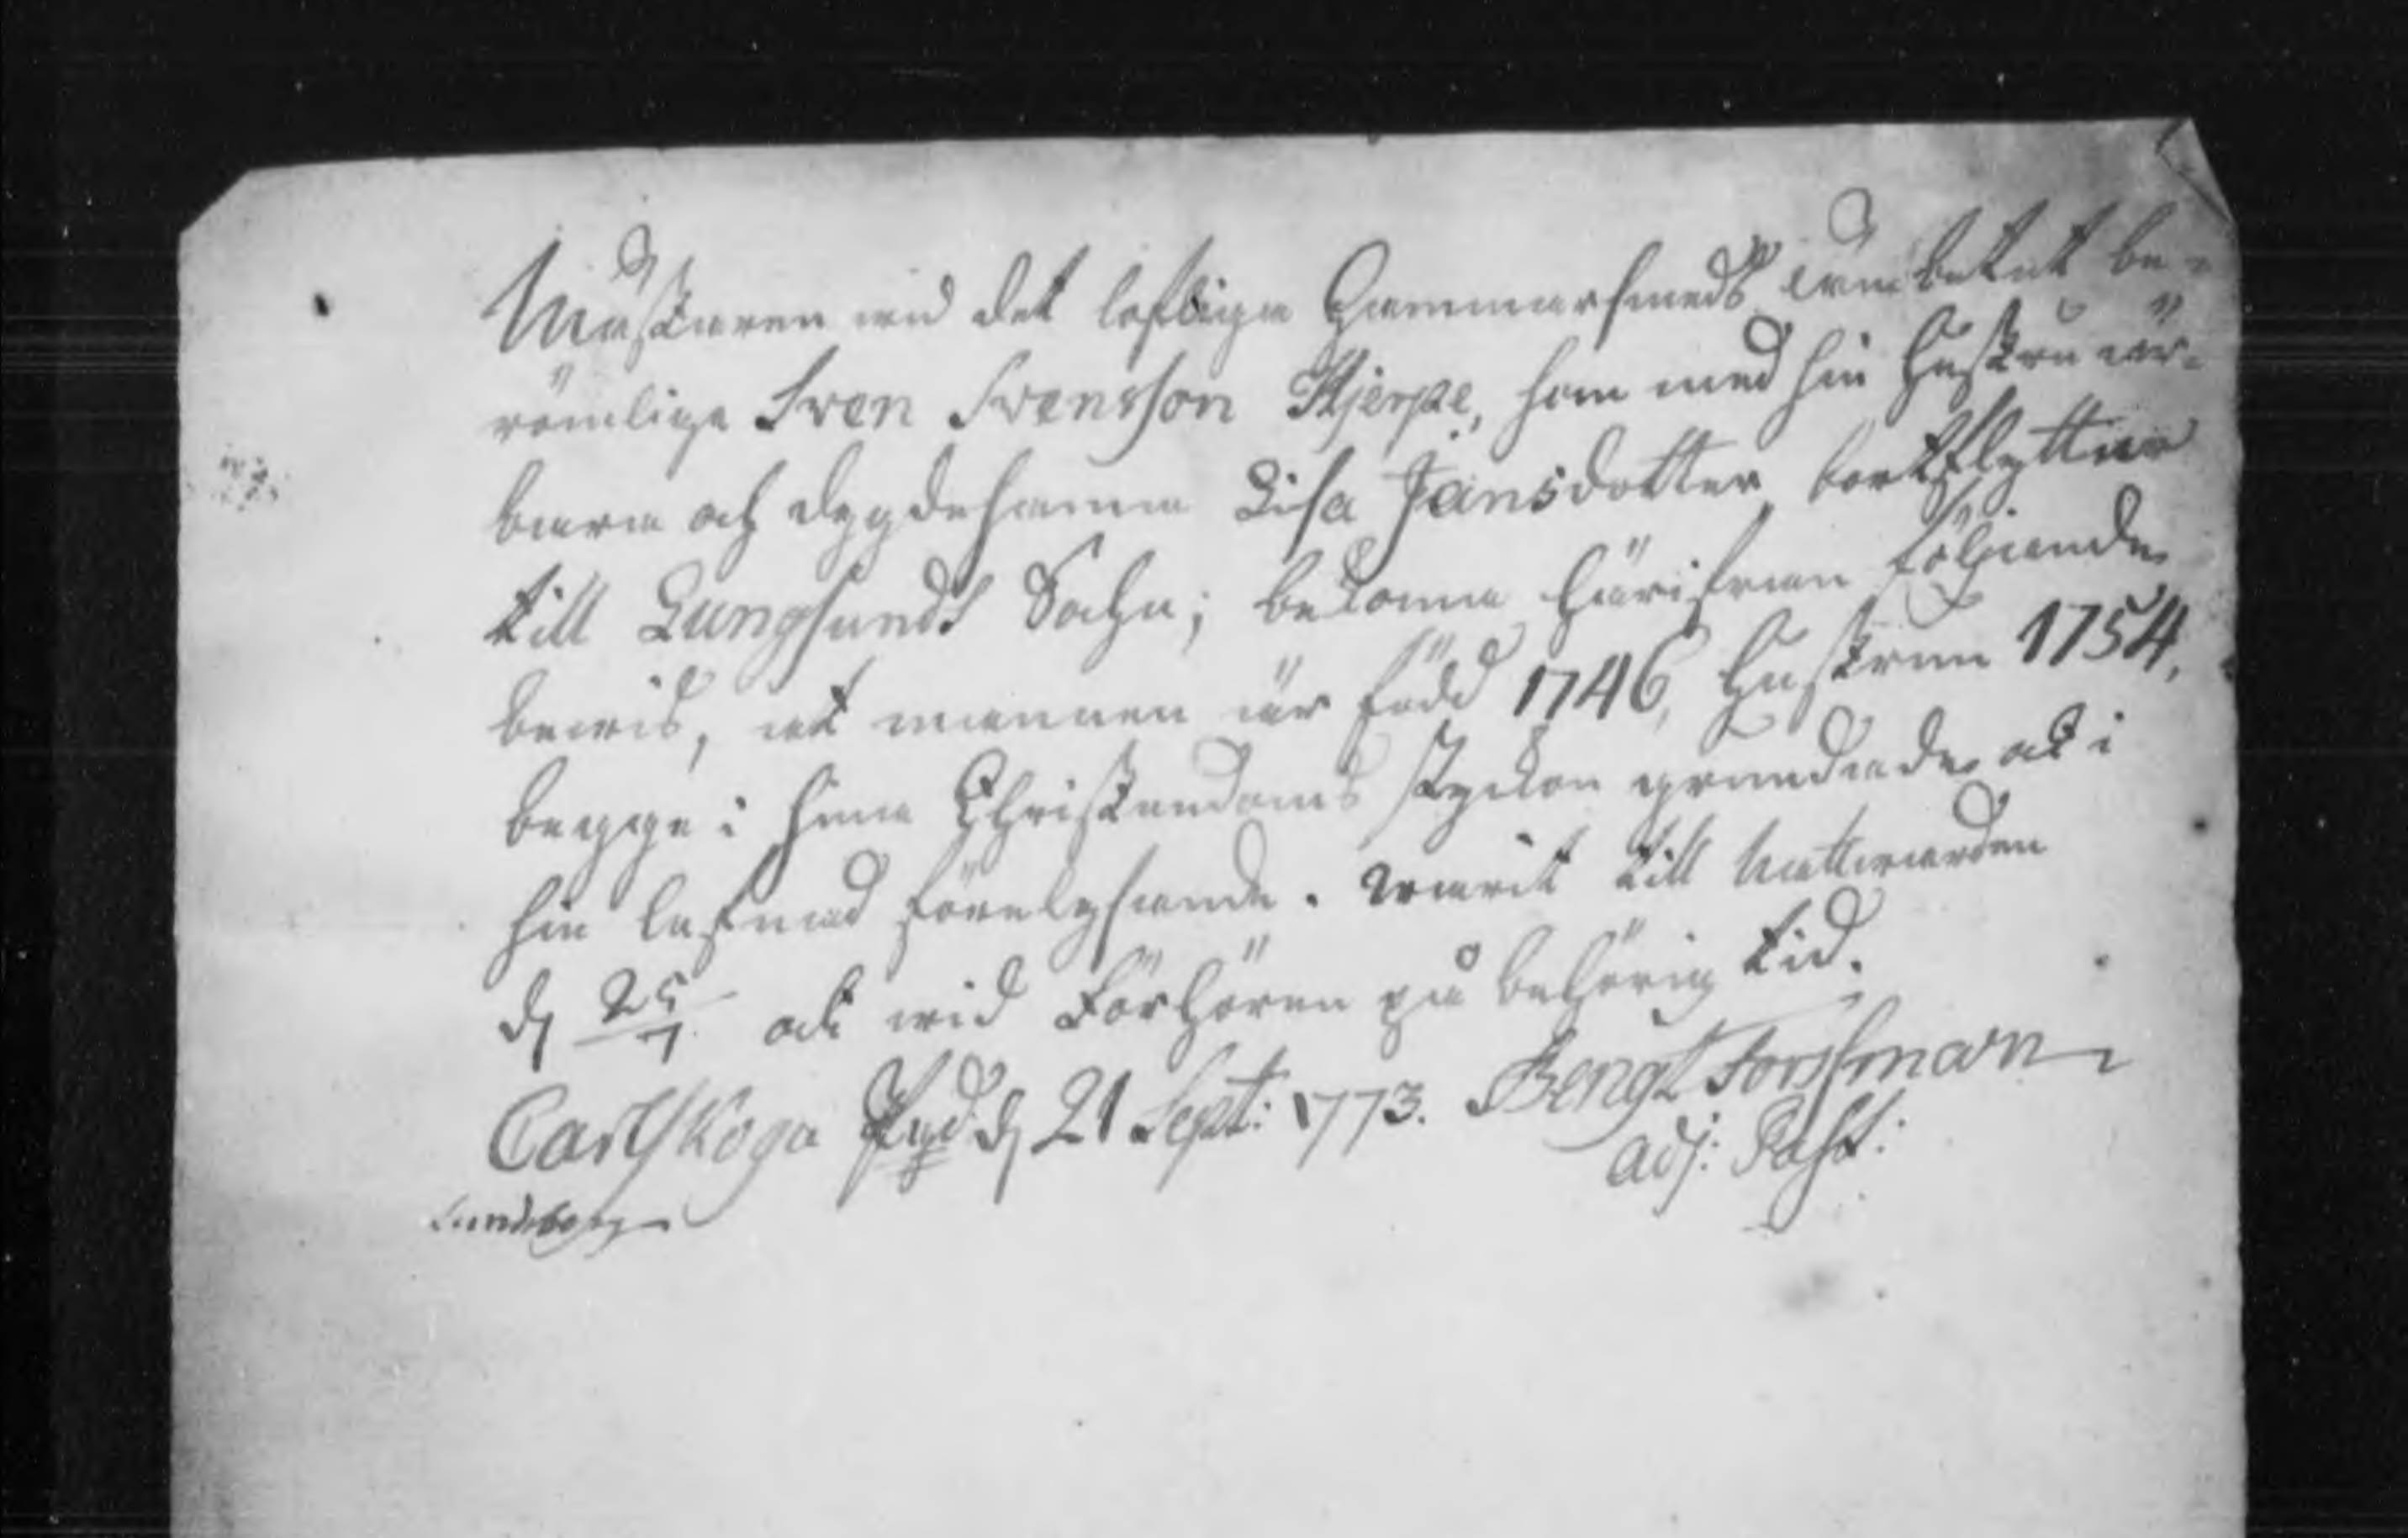 Mästaren wid det loflige Hammarsmeds embetet be-
römlige Sven Svensson Kjerpe, som med sin hustru ähr-
bara och dygdesamma Lisa Jansdotter bortflyttar
till Lungsunds Sochn; bekomma härifrån följande
bewis, at mannen är född 1746, hustrun 1754,
begge i sina Christendoms stycken grundade ock i
sin lefnad förelysande. Warit till Nattwarden
d. 25/7 ock wid Förhören på behörig tid.
Carlskoga Pgd d. 21 Sept: 1773. Bengt Forssman
adj: Past: